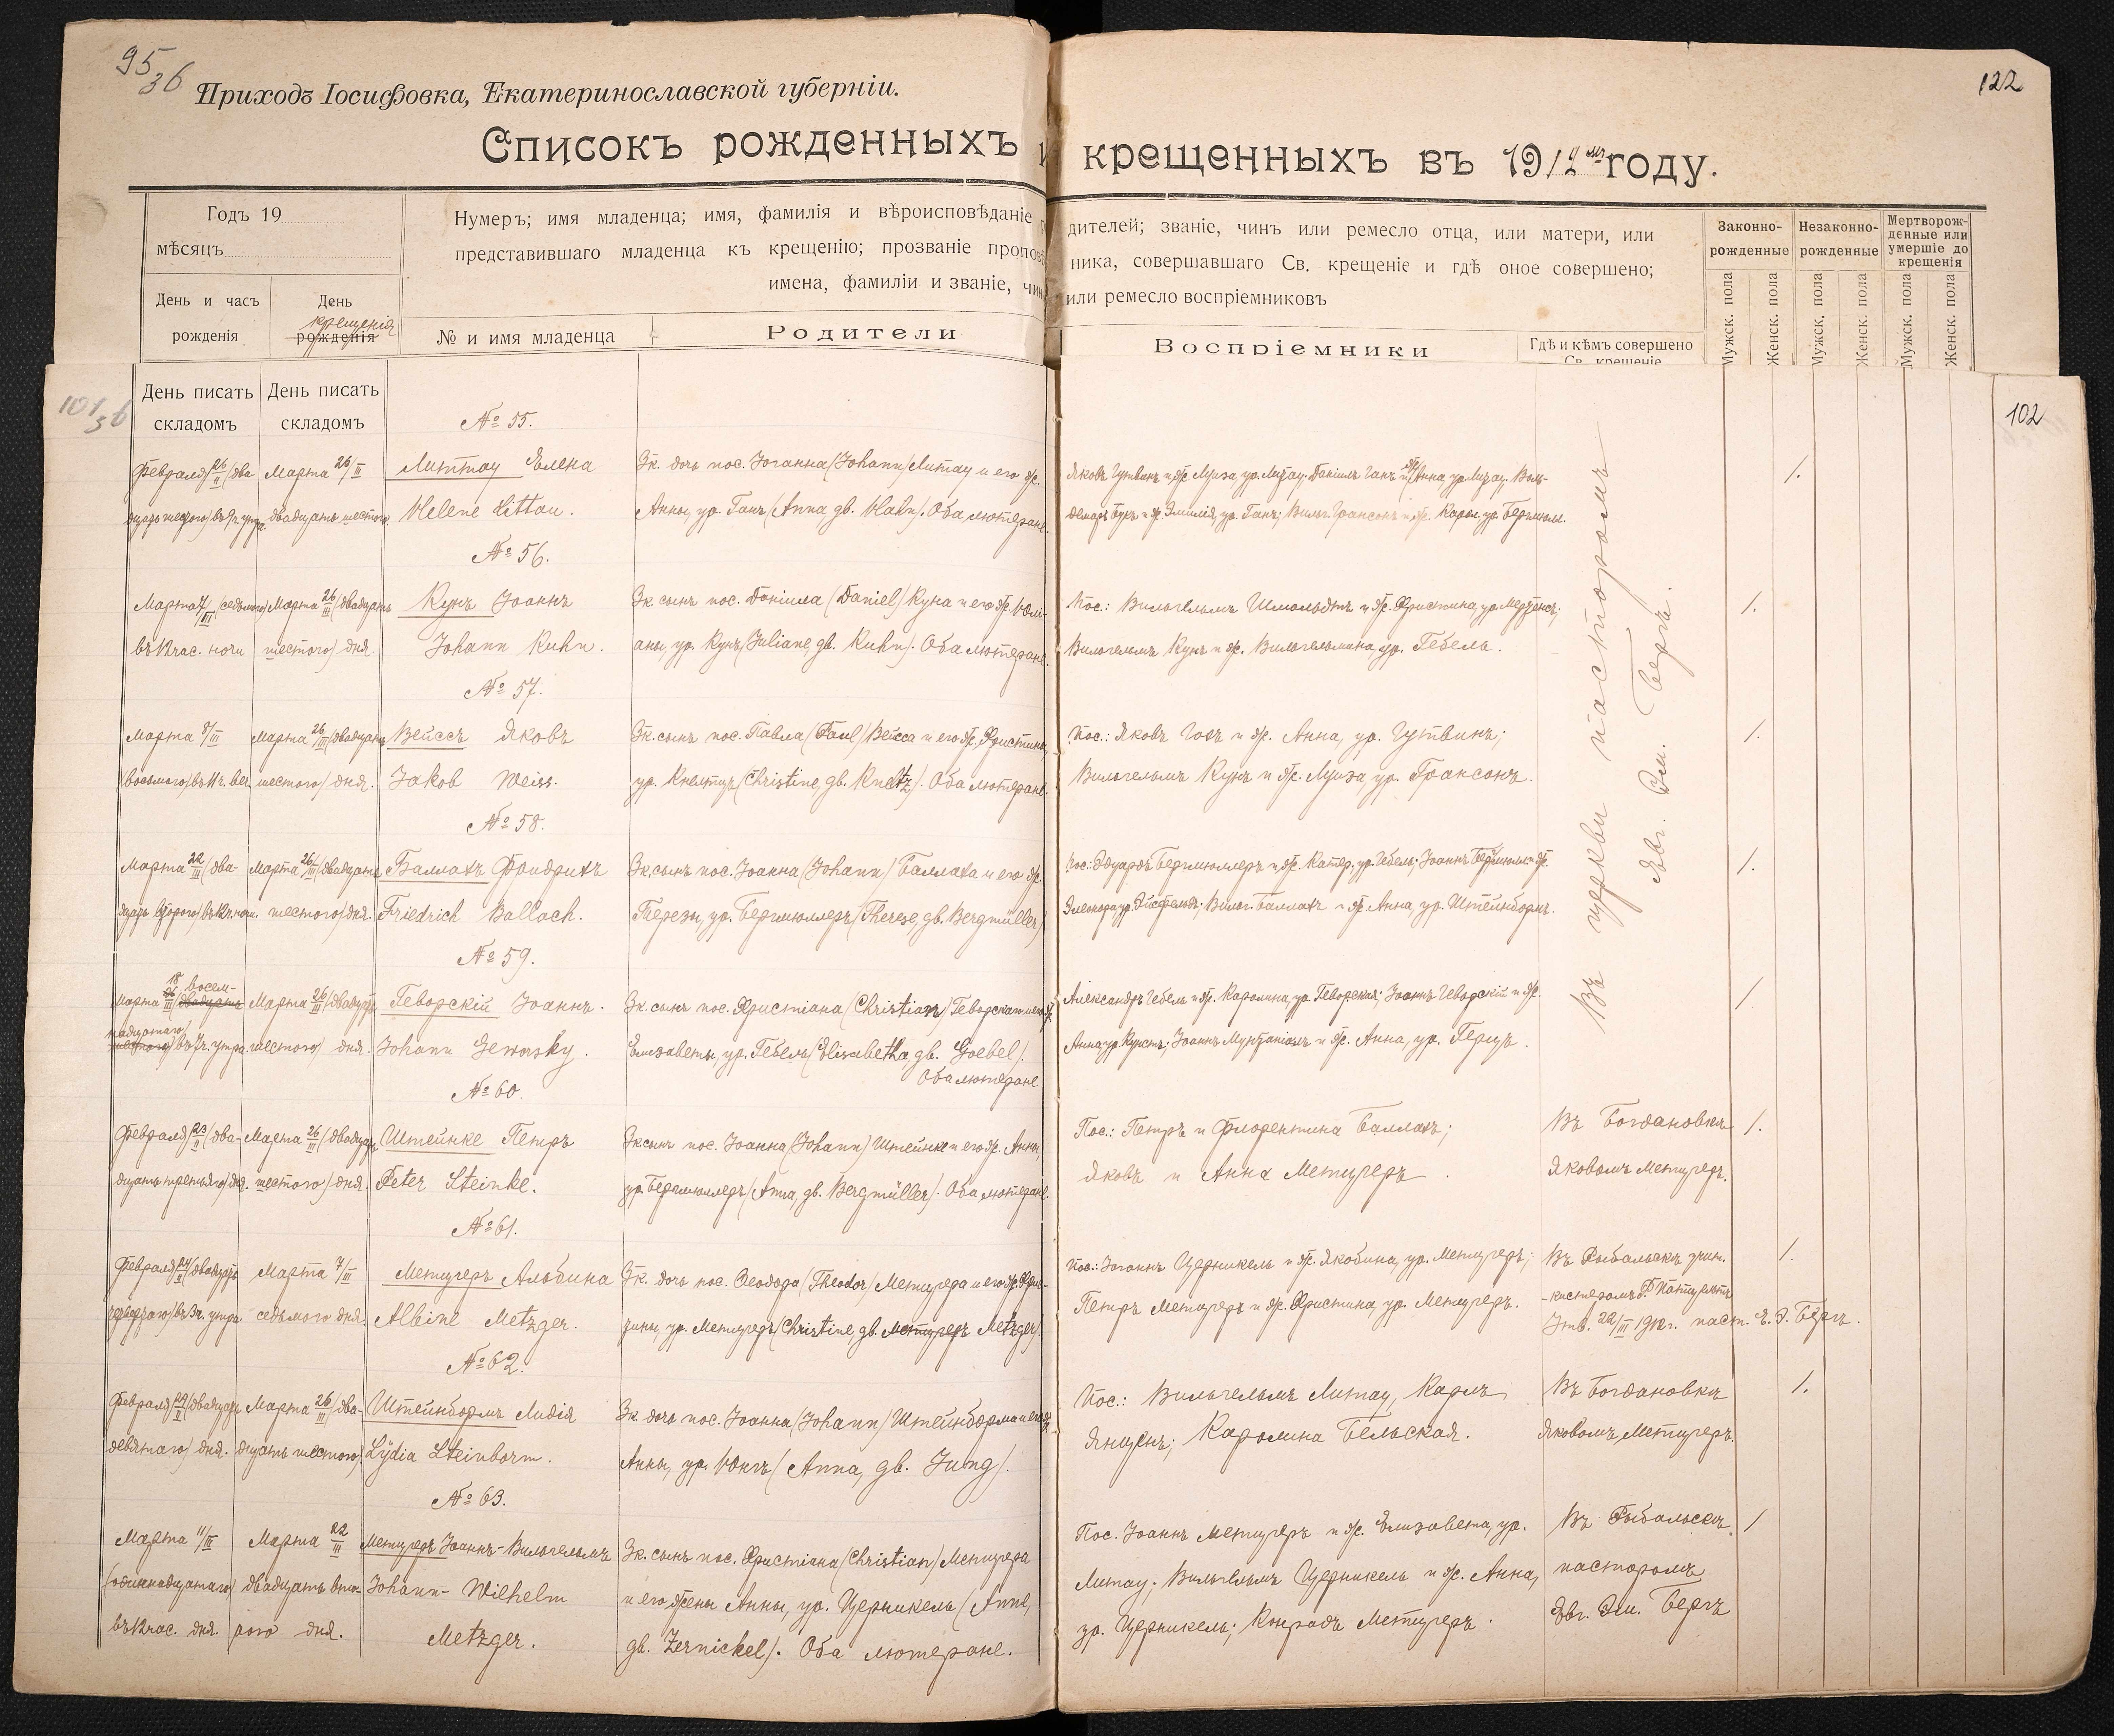 95
36
122
Приходъ Іосифовка, Екатеринославской губерніи.
Списокъ рожденныхъ и крещенныхъ въ 1912мъ году.
Годъ 19
мѣсяцъ
День и часъ рожденія
День крещенія рожденія
Нумеръ; имя младенца; имя, фамилія и вѣроисповѣданіе
дителей; званіе, чинъ или ремесло отца, или матери, или
представившаго младенца къ крещенію; прозваніе пропов
ника, совершавшаго Св. крещеніе и гдѣ оное совершено;
имена, фамиліи и званіе, чин
или ремесло воспріемниковъ
№ и имя младенца
Родители
Воспріемники
Гдѣ и кѣмъ совершено
Св. крещеніе
Законно-
рожденные
Незаконно-
рожденные
Мертворож-
денные или
умершіе до
крещенія
Мужск. пола
Женск. пола
Мужск. пола
Женск. пола
Мужск. пола
Женск. пола
101
36
102
День писать
складомъ
День писать
складомъ
№ 55.
Февраля 26/II (два-
Марта 26/III
Литтау Елена
Зк. дочь пос. Іоганна (Johann) Литау и его ж.
Яковъ Гутвинъ и ж. Луиза ур. Литау; Даніилъ Ганъ и ж. Анна ур. Литау; Воль-
1.
двадцать шестого
Helene Littau.
Анны, ур. Ганъ (Anna gb. Hahn). Оба лютеране.
№ 56.
Марта 7/III (седьмого)
Марта 26/III (двадцать
Кунъ Іоаннъ
Зк. сынъ пос. Даніила (Daniel) Куна и его ж. Юлі-
Пос.: Вильгельмъ Шмальдтъ и ж. Христина, ур. Мертенсъ;
1.
въ 12 час. ночи
шестого) дня
Johann Kuhn.
аны, ур. Кунъ (Juliane, gb. Kuhn). Оба лютеране.
Вильгельмъ Кунъ и ж. Вильгельмина, ур. Гебель.
№ 57.
Марта 8/III
Марта 26/III (двадцать
Вейссъ Яковъ
Зк. сынъ пос. Павла (Paul) Вейсса и его ж. Христины,
Пос.: Яковъ Госъ и ж. Анна, ур. Гутвинъ;
1.
восьмого) въ 11 ч. веч
шестого) дня.
Jakob Weiss.
ур. Кнельтцъ (Christine, gb. Kneltz). Оба лютеране.
Вильгельмъ Кунъ и ж. Луиза, ур. Грансонъ.
№ 58.
Марта 22/III (два-
Марта 26/III (двадцать
Баллахъ Фридрихъ
Зк. сынъ пос. Іоанна (Johann) Баллаха и его ж.
Пос.: Эдуардъ Бергмюллеръ и ж. Катер. ур. Гебель; Іоаннъ Бергмюлл. и ж.
1.
дцать второго) въ 12 ч. ночи.
шестого) дня.
Friedrich Ballach.
Терезы, ур. Бергмюллеръ (Therese, gb. Bergmüller)
Вильг. Баллахъ и ж. Анна, ур. Штейнборнъ.
№ 59.
Марта 18/III восем-
Марта 26/III (двадцать
Геворскій Іоаннъ.
Зк. сынъ пос. Христіана (Christian) Геворскаго и его ж.
Александръ Гебель и ж. Каролина, ур. Геворская; Іоаннъ Геворскій и ж.
1
надцатаго) въ 7 ч. утра.
шестого) дня.
Johann Geworsky.
Елизаветы, ур. Гебель (Elisabetha, gb. Goebel).
Анна ур. Кунстъ; Іоаннъ Мунтаніолъ и ж. Анна, ур. Герцъ.
Оба лютеране.
Въ церкви пасторомъ
Евг. Эм. Бергъ.
№ 60.
Февраля 23/II (два-
Марта 26/III (двадцать
Штейнке Петръ
Зк. сынъ пос. Іоанна (Johann) Штейнке и его ж. Анны,
Пос.: Петръ и Флорентина Баллахъ;
Въ Богдановкѣ
1.
дцать третьяго) дня.
шестого) дня.
Peter Steinke.
ур. Бергмюллеръ (Anna, gb. Bergmüller). Оба лютеране.
Яковъ и Анна Метцгеръ.
Яковомъ Метцгеръ.
№ 61.
Февраля 24/II (двадцать
Марта 7/III
Метцгеръ Альбина
Зк. дочь пос. Ѳеодора (Theodor) Метцгера и его ж. Хри-
Пос.: Іоганнъ Церникель и ж. Якобина, ур. Метцгеръ;
Въ Рыбальскѣ учит.
1.
четвертаго) въ 3 ч. утра
седьмого дня
Albine Metzger.
тины, ур. Метцгеръ (Christine, gb. Метцгеръ Metzger).
Петръ Метцгеръ и ж. Христина, ур. Метцгеръ.
Утв. 22/III 1912 г. паст. Е. Э. Бергъ.
№ 62.
Февраля 29/II (двадцать
Марта 26/III (два-
Штейнборнъ Лидія
Зк. дочь пос. Іоанна (Johann) Штейнборна и его ж.
Пос.: Вильгельмъ Литау, Карлъ
Въ Богдановкѣ
1.
девятаго) дня.
дцать шестого).
Lydia Steinborn.
Анны, ур. Юнгъ (Anna, gb. Jung).
Янценъ; Каролина Бельская.
Яковомъ Метцгеръ.
№ 63.
Марта 11/III
Марта 22/III
Метцгеръ Іоаннъ-Вильгельмъ
Зк. сынъ пос. Христіана (Christian) Метцгера
Пос. Іоаннъ Метцгеръ и ж. Елизавета, ур.
Въ Рыбальскѣ
1
(одиннадцатаго)
двадцать вто-
Johann-Wilhelm
и его жены Анны, ур. Церникель (Anne,
Литау; Вильгельмъ Церникель и ж. Анна,
пасторомъ
въ 12 час. дня.
рого дня.
Metzger.
gb. Zernickel). Оба лютеране.
ур. Церникель; Конрадъ Метцгеръ.
Евг. Эм. Бергъ